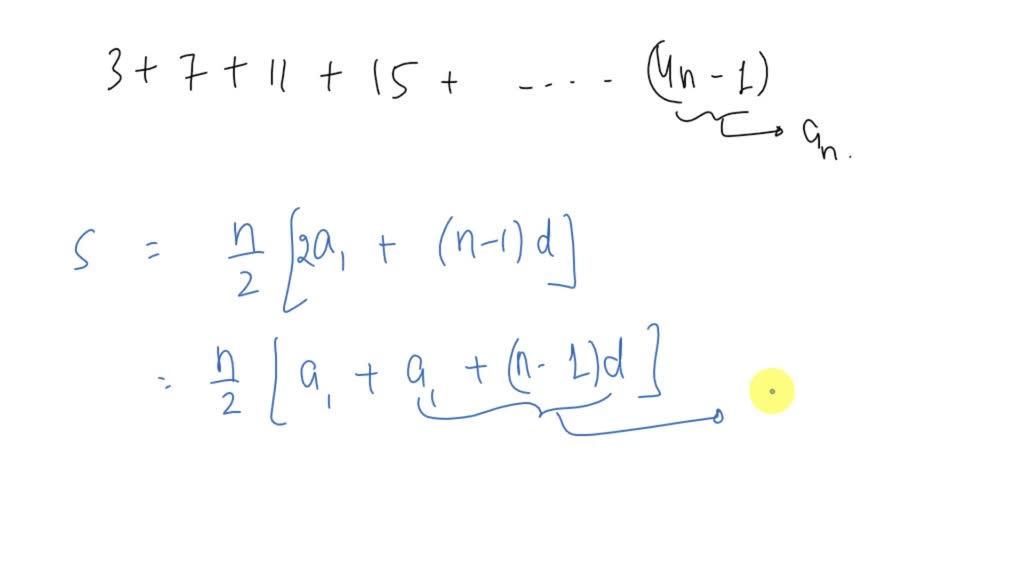 3 + 7 + 11 + 15 + ..... (4n - 1)
an.
S = n/2 [2a1 + (n-1)d]
= n/2 [a1 + a1 + (n-1)d]